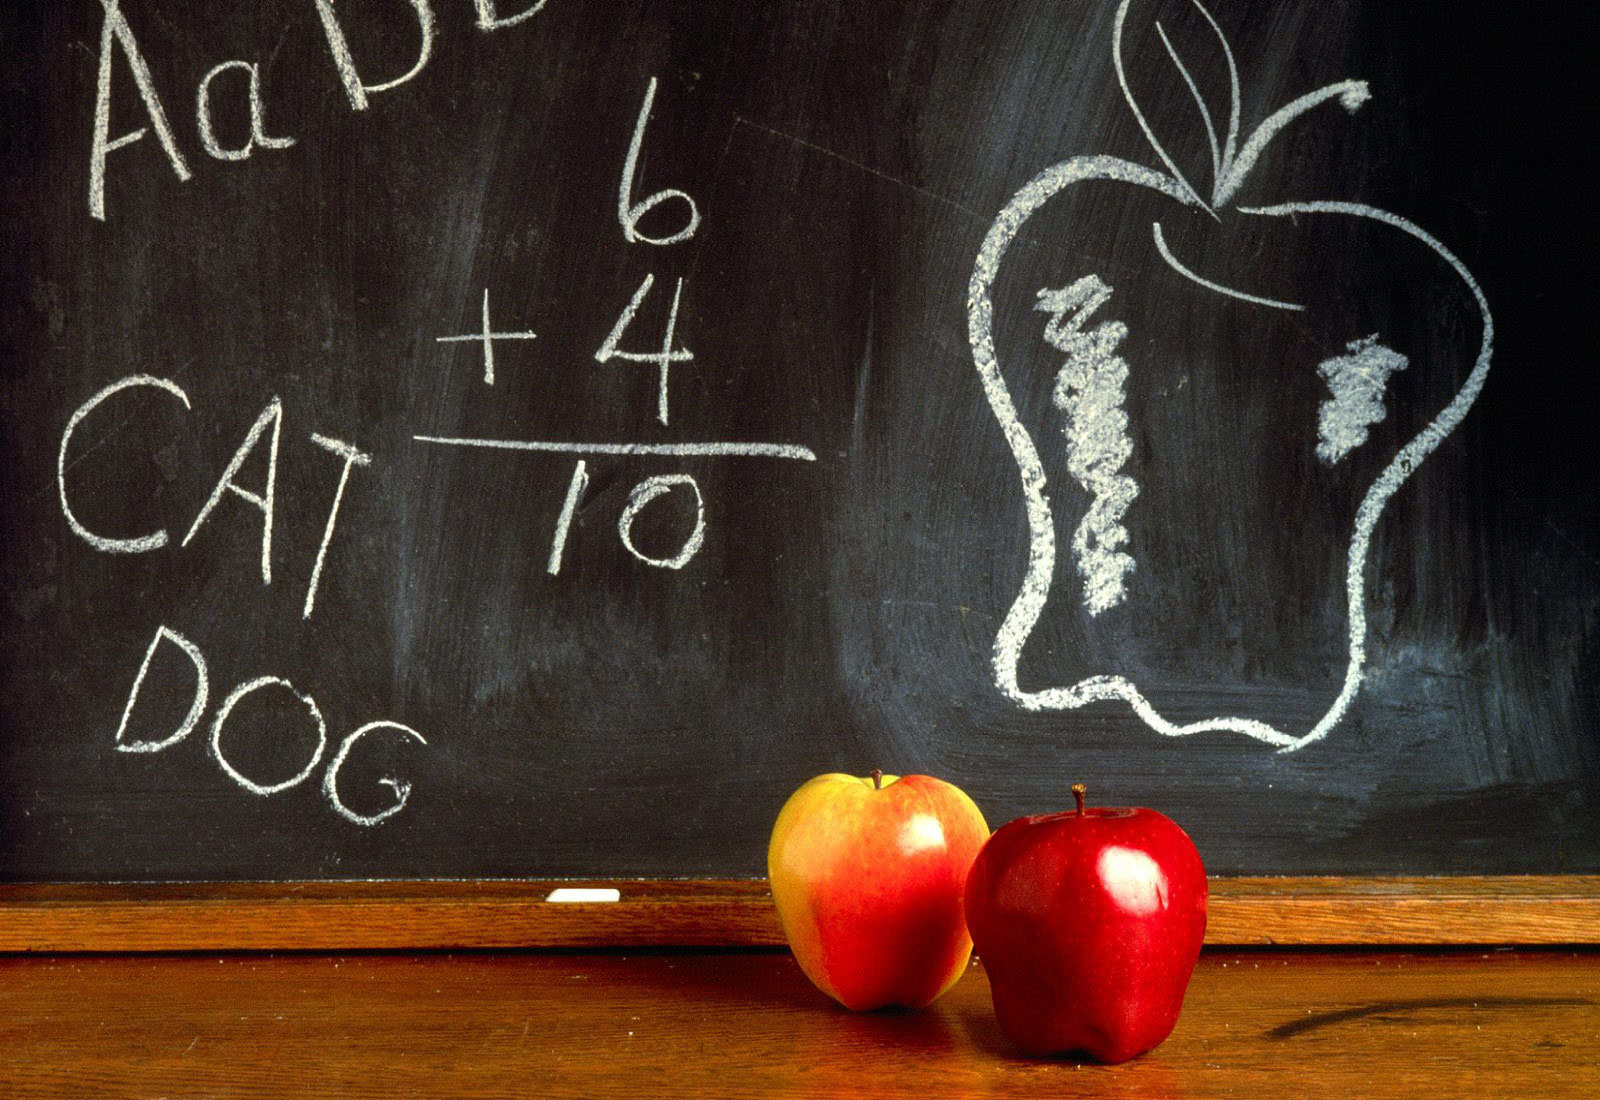 Aa D
6
+ 4
10
CAT
DOG